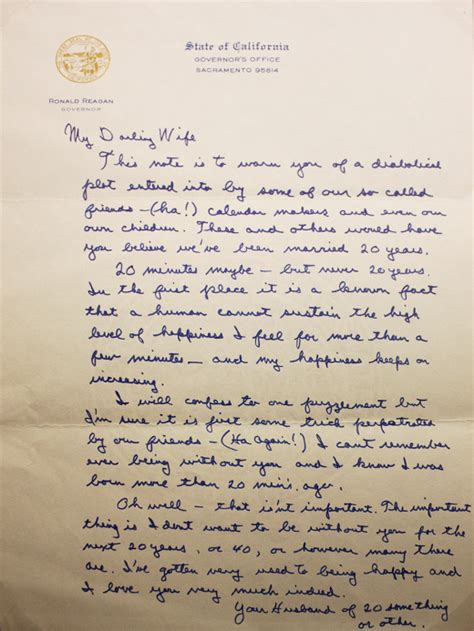 State of California
GOVERNOR'S OFFICE
SACRAMENTO 95814
RONALD REAGAN
GOVERNOR
My Darling Wife
This note is to warn you of a diabolical
plot entered into by some of our so called
friends – (ha!) calendar makers and even our
own children. These and others would have
you believe we've been married 20 years.
20 minutes maybe – but never 20 years.
In the first place it is a known fact
that a human cannot sustain the high
level of happiness I feel for more than a
few minutes – and my happiness keeps on
increasing.
I will confess to one puzzlement but
I'm sure it is just some trick perpetrated
by our friends – (Ha again!) I can't remember
ever being without you and I know I was
born more than 20 min's. ago.
Oh well – that isn't important. The important
thing is I don't want to be without you for the
next 20 years, or 40, or however many there
are. I've gotten very used to being happy and
I love you very much indeed.
Your Husband of 20 something
or other.